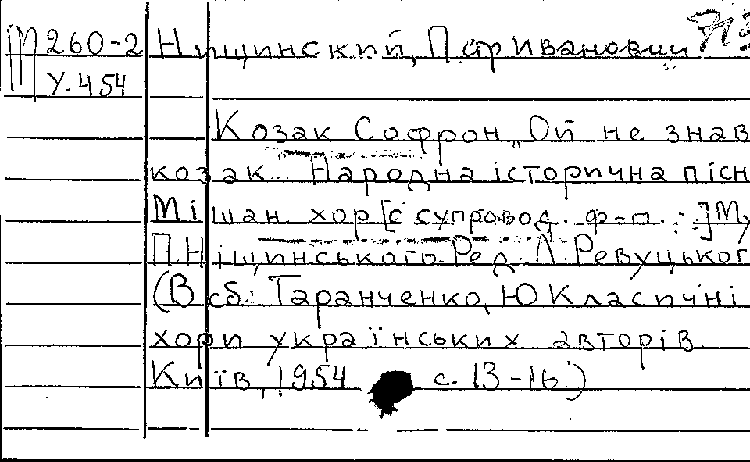 М 260-2 Нищинский, П
У.454
Козак Софрон „Ой не знав
козак. Народна історична пісн
Мішан. хор [с супровод. ф-п. :] М,
П. Ніщинського. Ред. Л. Ревуцьког
(В сб: Таранченко, Ю Класичні
хори українських авторів.
Київ, 1954 с. 13-16)